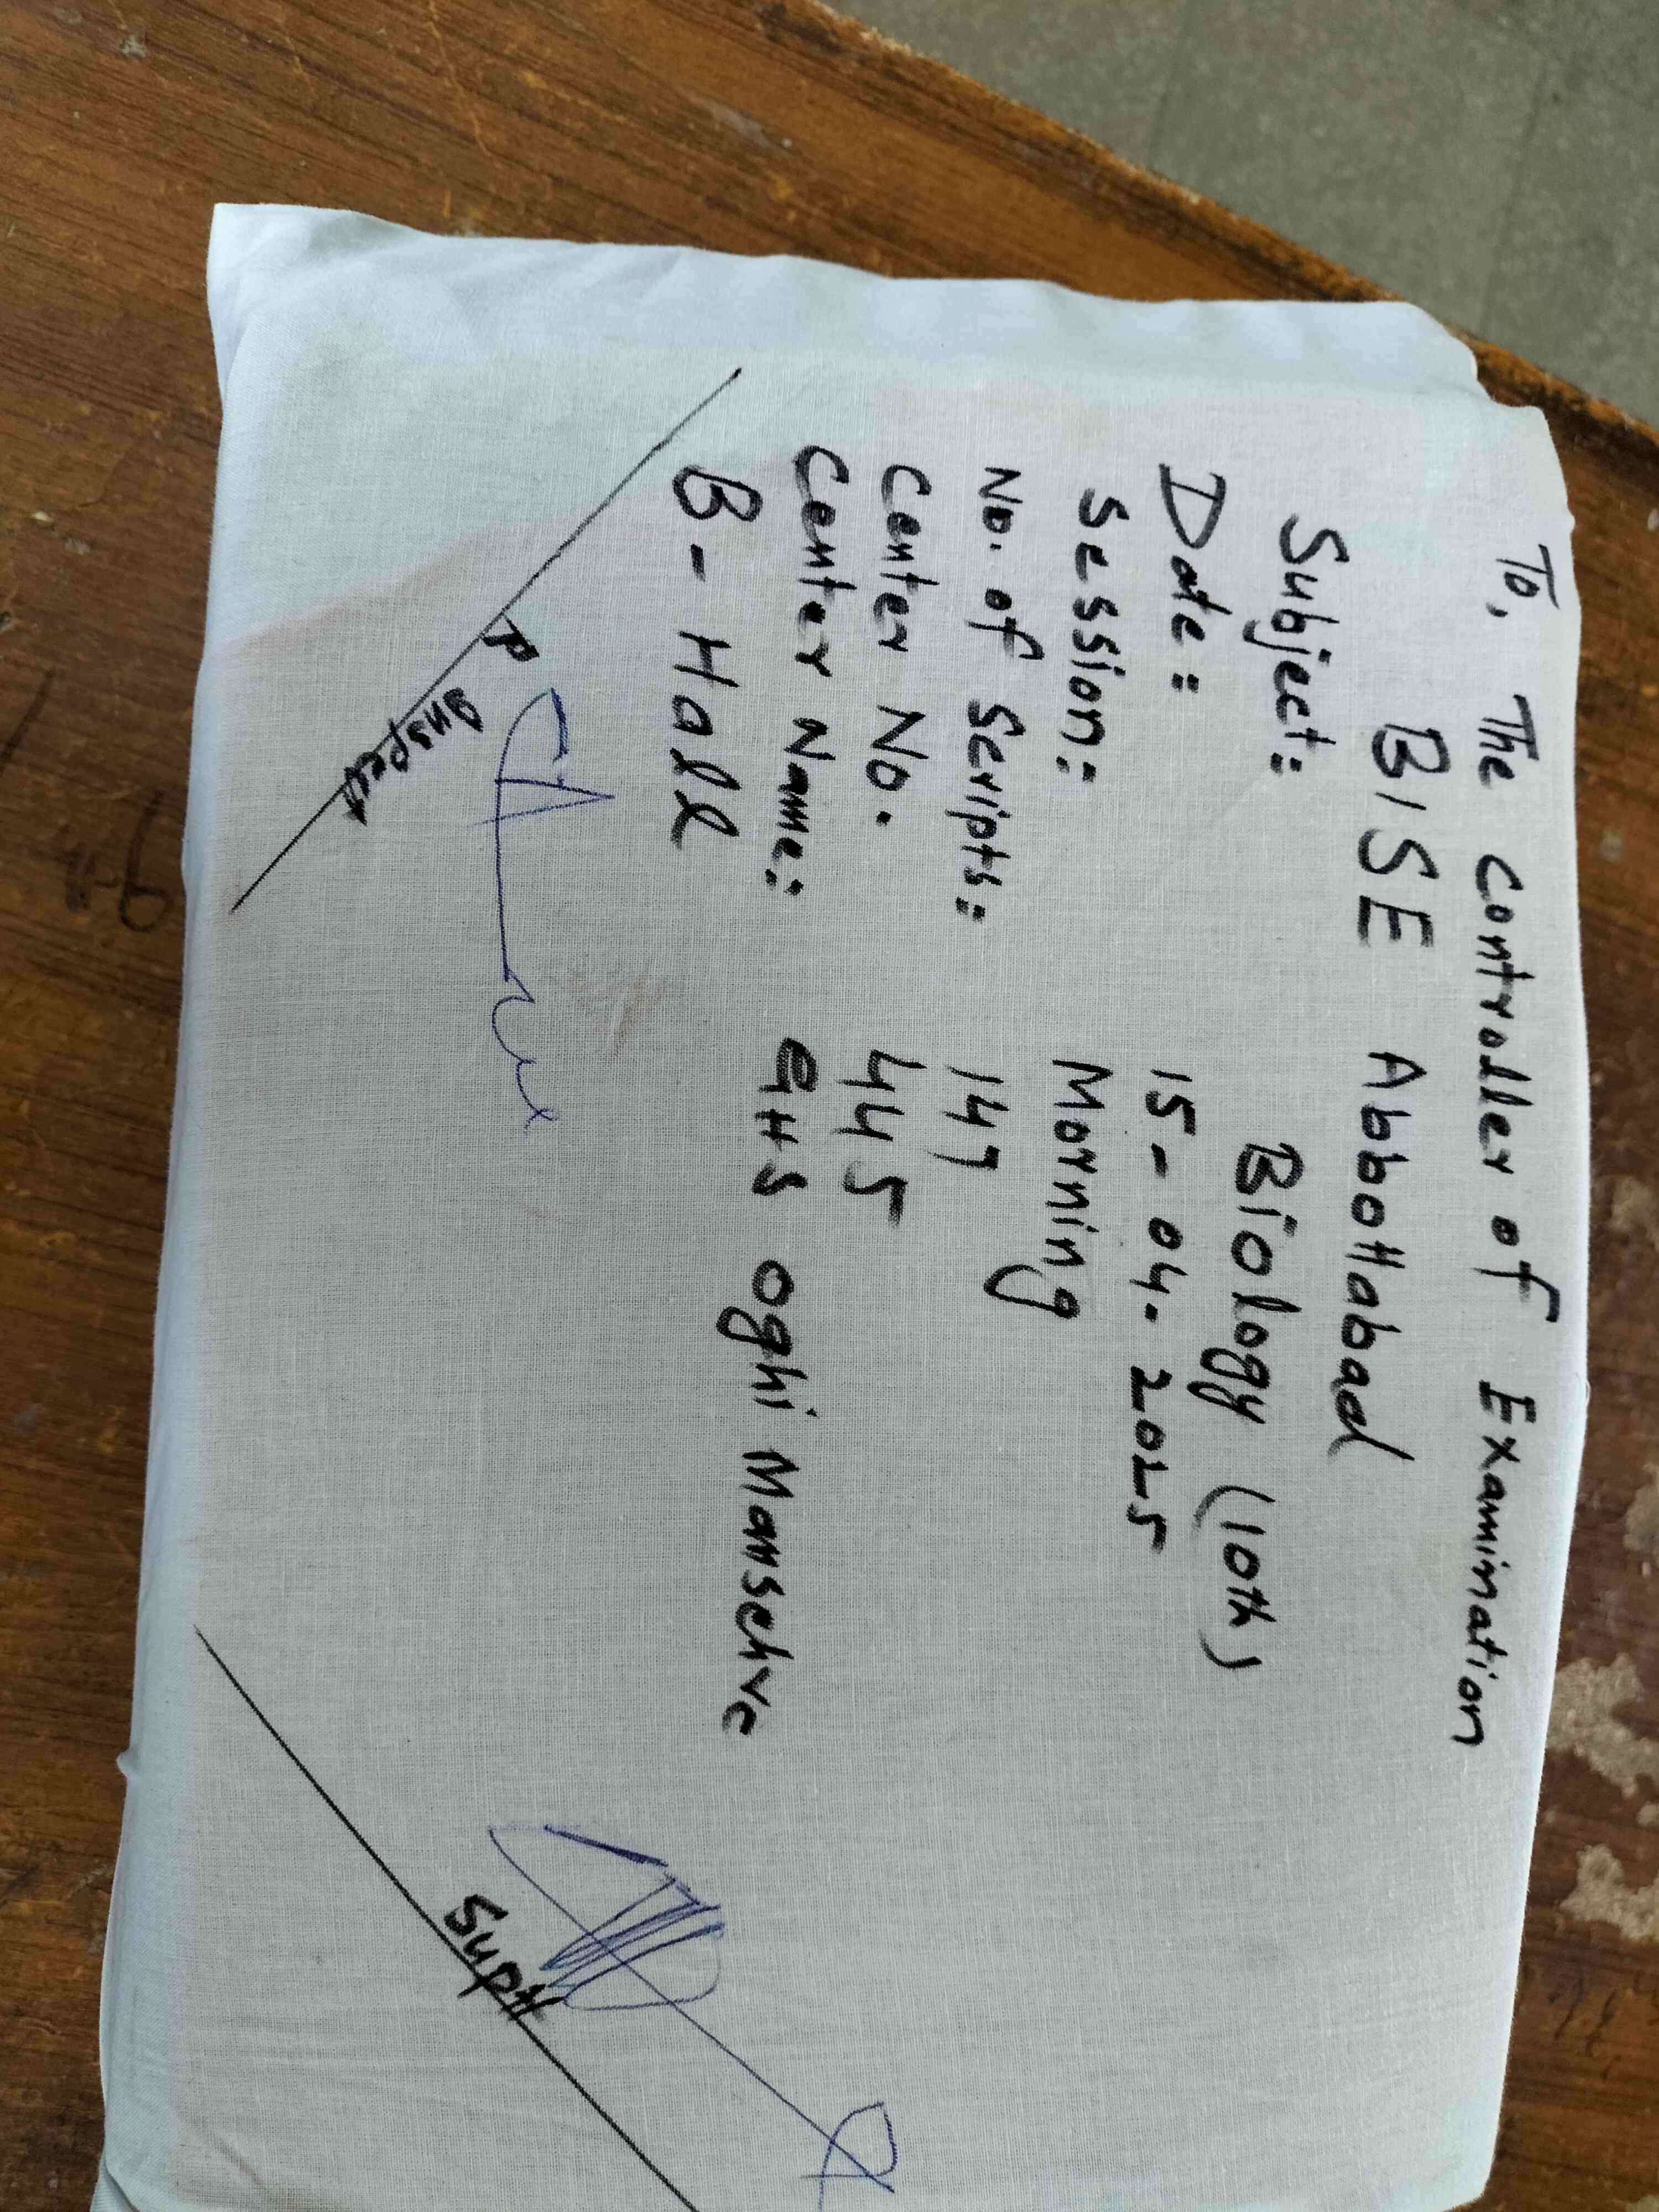 To, The Controller of Examination
BISE Abbottabad
Subject: Biology (10th)
Date: 15-04-2025
Session: Morning
No. of Scripts: 147
Center No. 445
Center Name: GHS Oghi Mansehra
B-Hall
Supdt